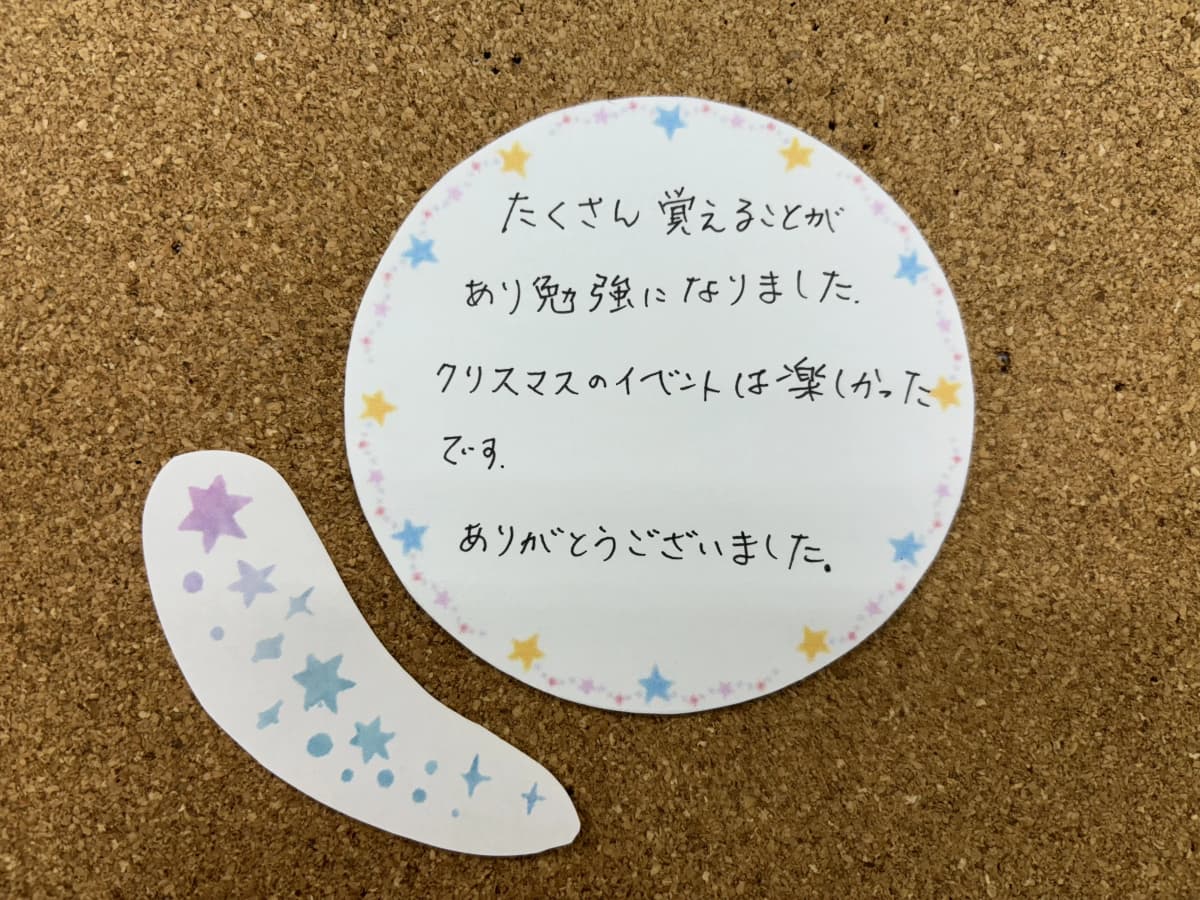 たくさん覚えることが
あり勉強になりました.
クリスマスのイベントは楽しかった
です.
ありがとうございました.